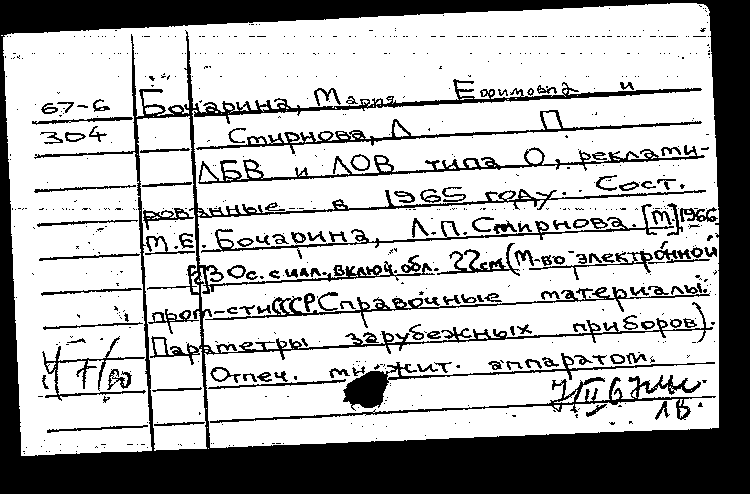 67-6 Бочарина, Мария Ефимовна и
304 Смирнова, Л П
ЛБВ и ЛОВ типа О, реклами-
рованные в 1965 году. Сост.
М.Е. Бочарина, Л.П. Смирнова. [М] 1966
30с. с илл., включ. обл. 22см (М-во электронной
пром-сти СССР. Справочные материалы.
Параметры зарубежных приборов).
Отпеч. множит. аппаратом.
ЛВ.